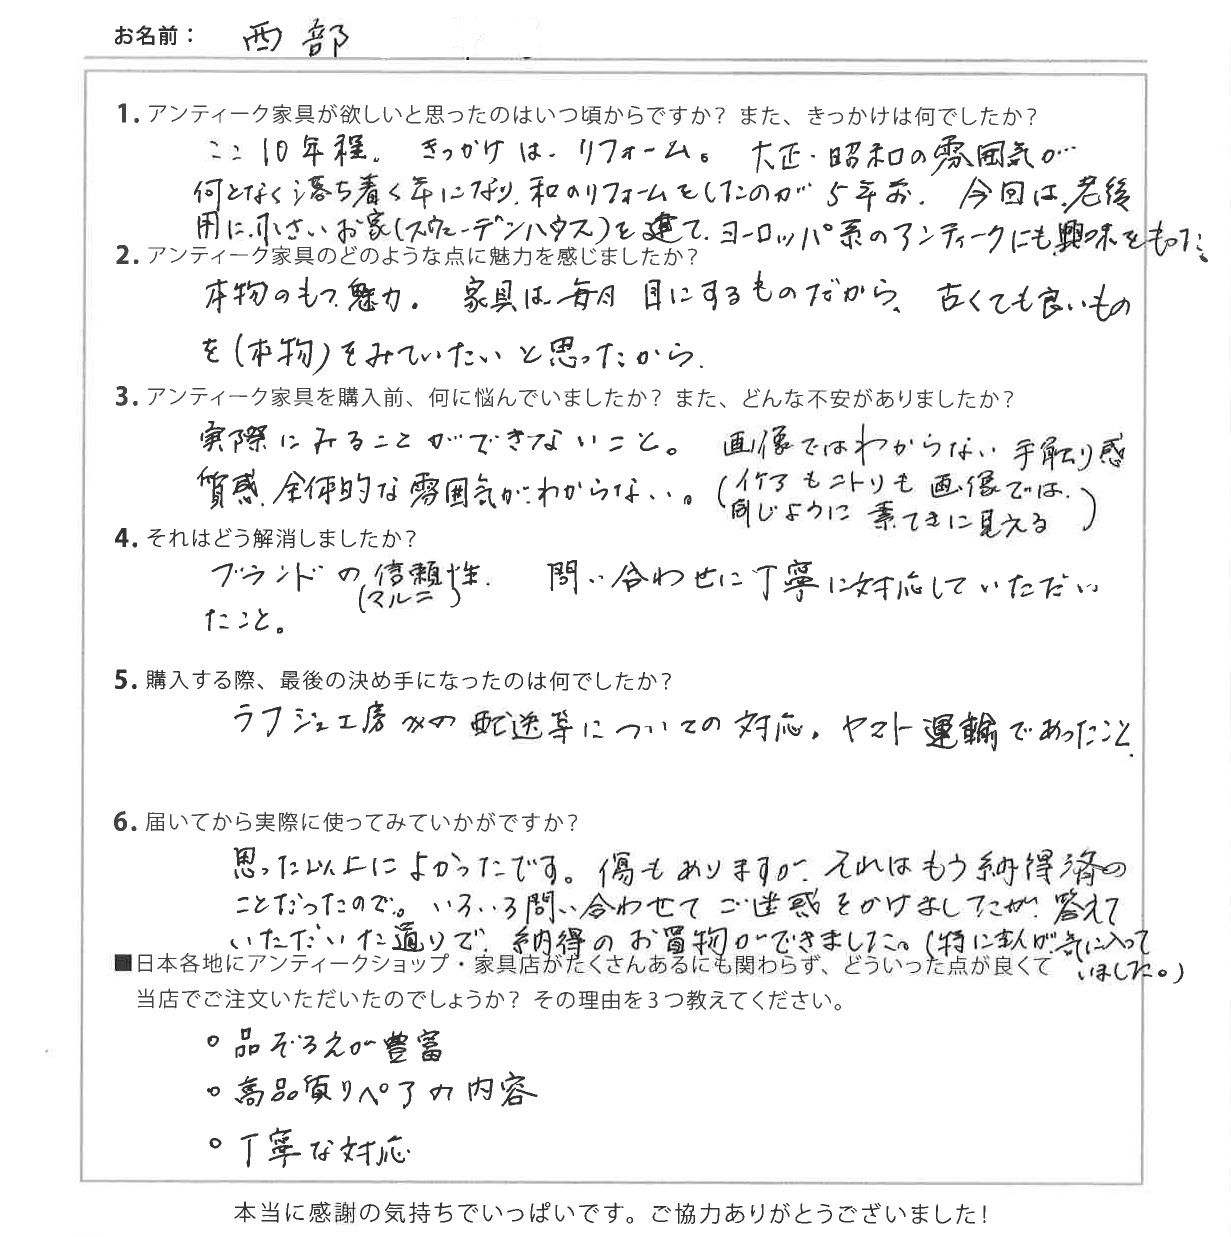 お名前： 西部
1. アンティーク家具が欲しいと思ったのはいつ頃からですか？ また、きっかけは何でしたか？
ここ10年程。 きっかけは、リフォーム。 大正・昭和の雰囲気が
何となく落ち着く年になり、和のリフォームをしたのが5年前。 今回は、老後
用に小さいお家(スウェーデンハウス)を建て、ヨーロッパ系のアンティークにも興味をもった。
2. アンティーク家具のどのような点に魅力を感じましたか？
本物のもつ魅力。 家具は毎日 目にするものだから、 古くても良いもの
を(本物)をみていたいと思ったから。
3. アンティーク家具を購入前、何に悩んでいましたか？ また、どんな不安がありましたか？
実際にみることができないこと。 画像ではわからない手触り感
質感、全体的な雰囲気がわからない。(イケアもニトリも画像では、
同じように素てきに見える)
4. それはどう解消しましたか？
ブランドの信頼性。 問い合わせに丁寧に対応していただい
(マルニ)
たこと。
5. 購入する際、最後の決め手になったのは何でしたか？
ラフジュ工房さんの配送等についての対応。ヤマト運輸であったこと。
6. 届いてから実際に使ってみていかがですか？
思った以上によかったです。傷もありますが、それはもう納得済の
ことだったので。いろいろ問い合わせてご迷惑をかけましたが、答えて
いただいた通りで、納得のお買物ができました。(特に主人が気に入って
いました。)
■日本各地にアンティークショップ・家具店がたくさんあるにも関わらず、どういった点が良くて
当店でご注文いただいたのでしょうか？ その理由を３つ教えてください。
○ 品ぞろえが豊富
○ 高品質リペアの内容
○ 丁寧な対応
本当に感謝の気持ちでいっぱいです。ご協力ありがとうございました！